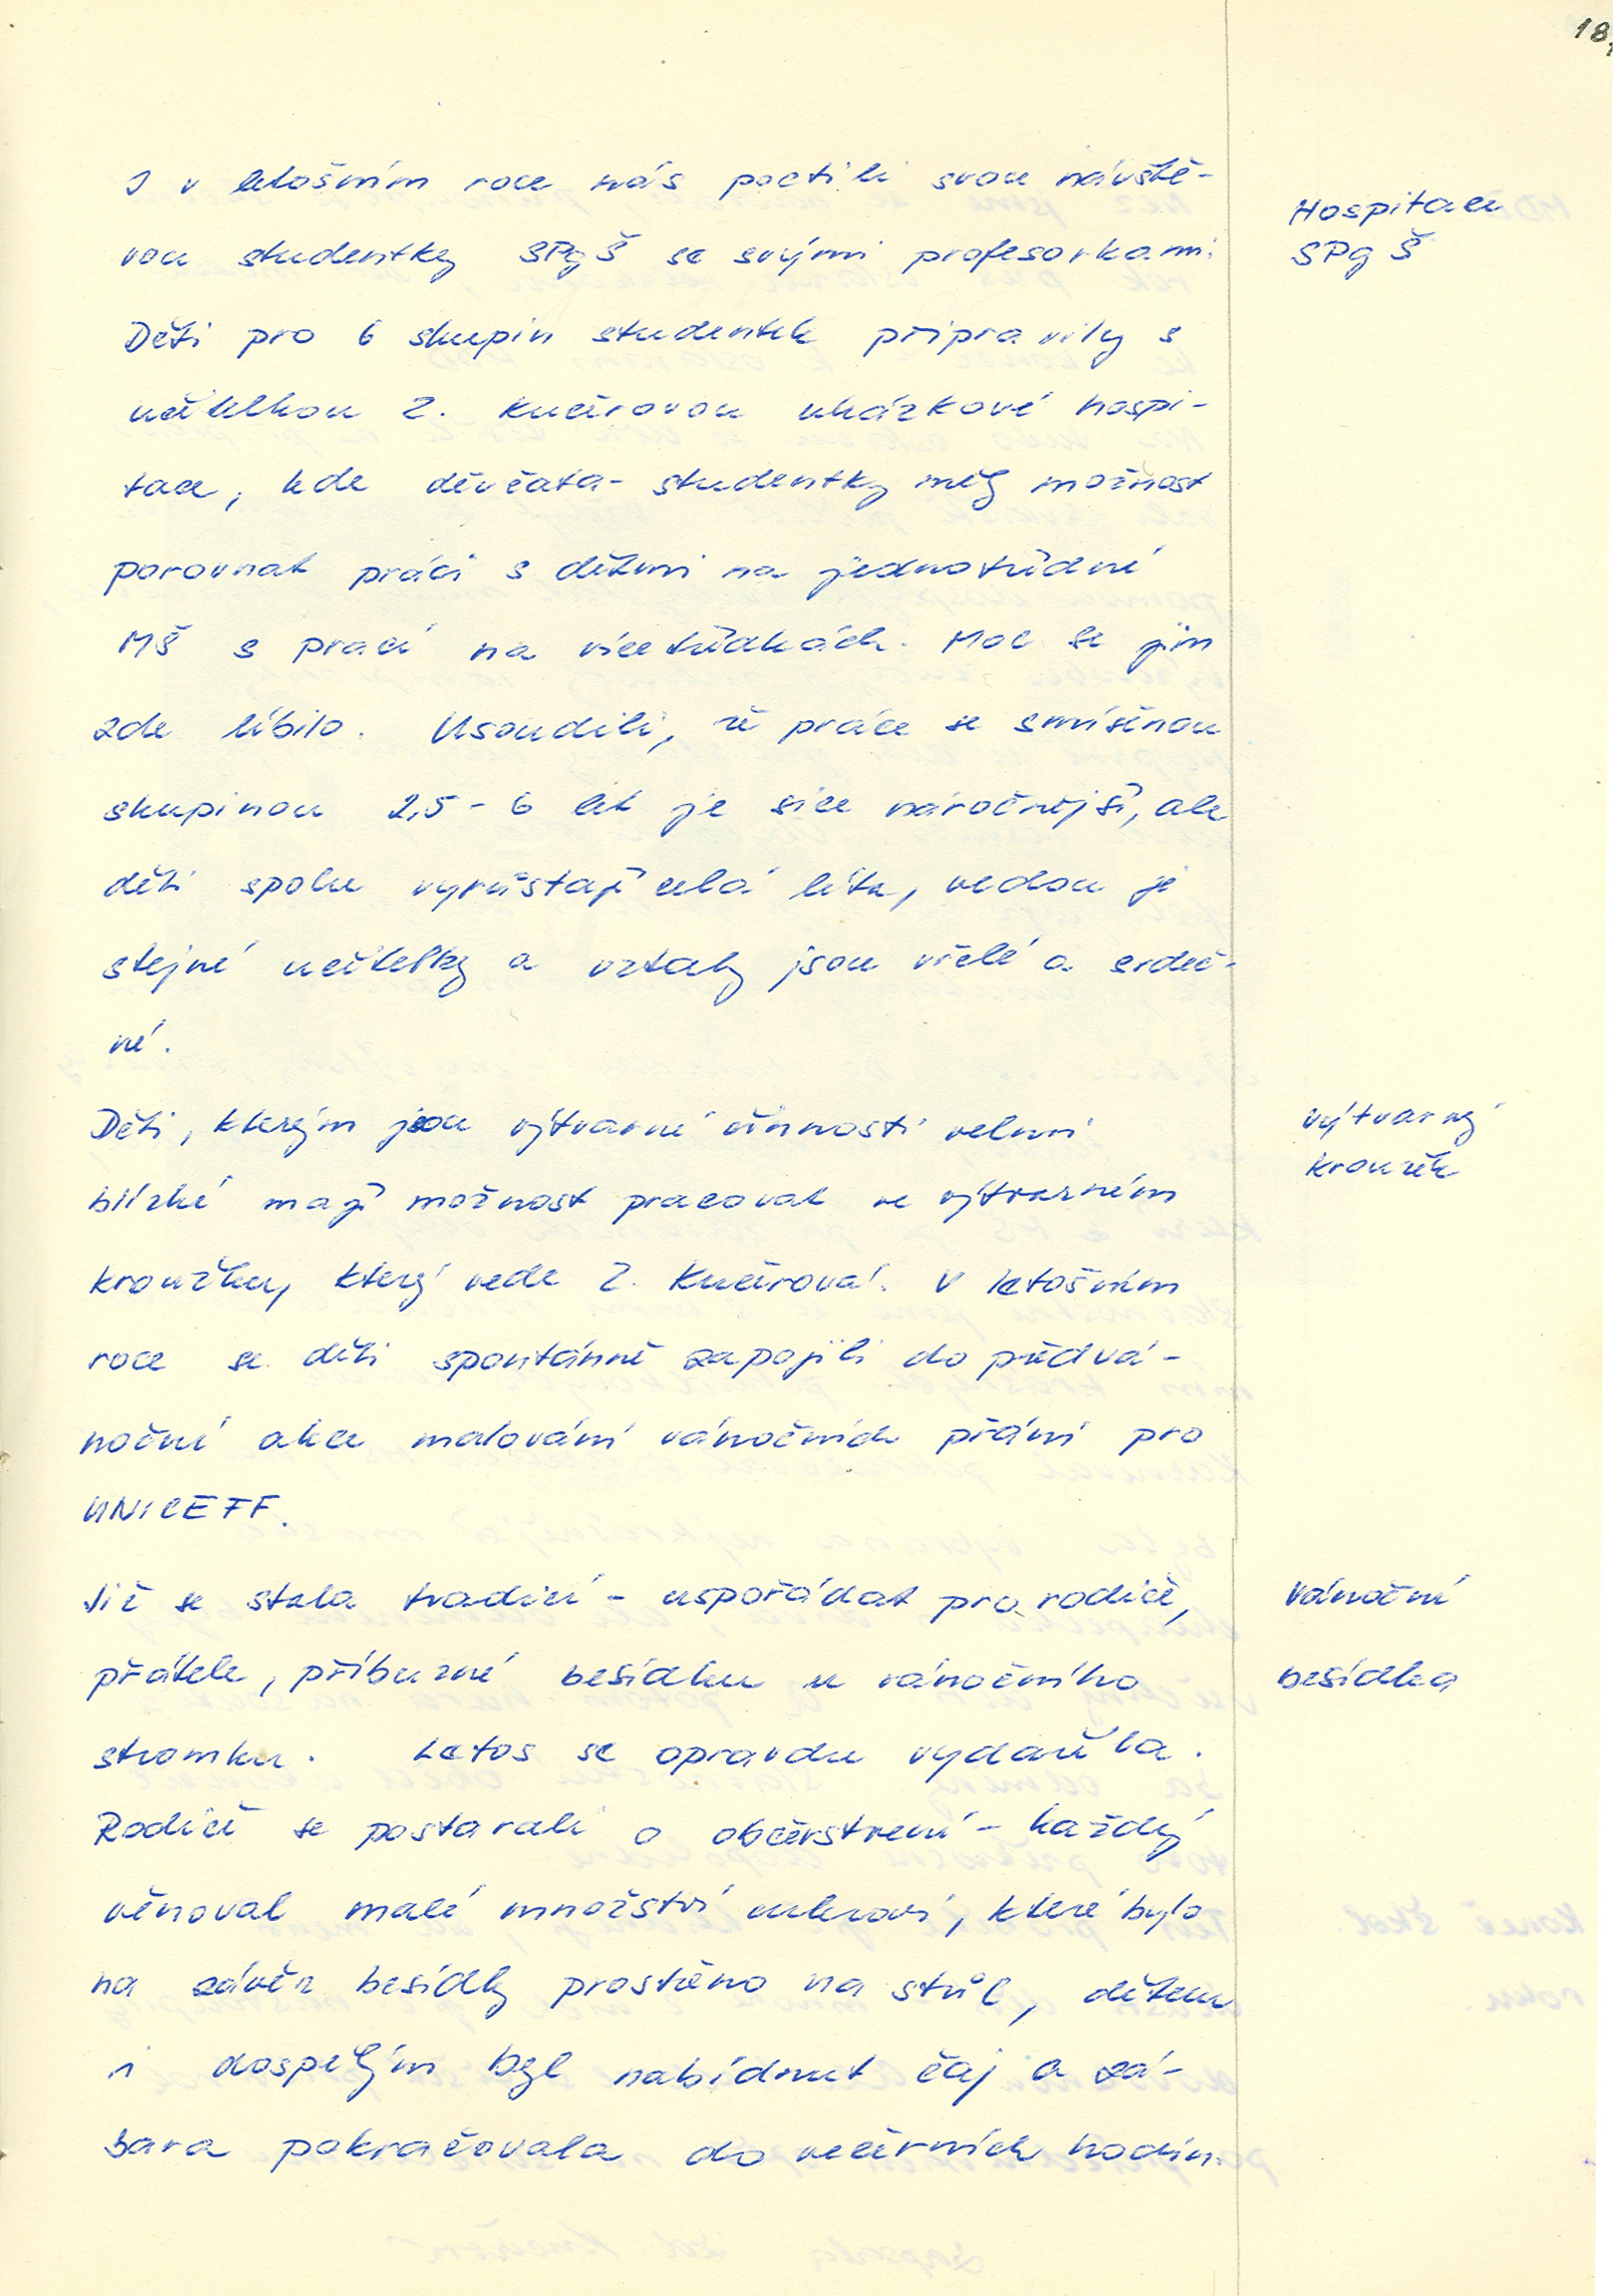 18.
I v letošním roce nás poctili svou návště-
vou studentky SPgŠ se svými profesorkami.
Děti pro 6 skupin studentek připravily s
učitelkou Z. Kučírovou ukázkové hospi-
tace, kde děvčata - studentky měly možnost
porovnat práci s dětmi na jednotřídné
MŠ s prací na vícetřídkách. Moc se jim
zde líbilo. Usoudili, že práce se smíšenou
skupinou 2,5 - 6 let je sice náročnější, ale
děti spolu vyrůstají celá léta, vedou je
stejné učitelky a vztahy jsou vřelé a srdeč-
né.
Hospitace
SPgŠ
Děti, kterým jsou výtvarné činnosti velmi
blízké mají možnost pracovat ve výtvarném
kroužku, který vede Z. Kučírová. V letošním
roce se děti spontánně zapojili do předvá-
noční akce malování vánočních přání pro
UNICEFF.
výtvarný
kroužek
Již se stala tradicí - uspořádat pro rodiče,
přátele, příbuzné besídku u vánočního
stromku. Letos se opravdu vydařila.
Rodiče se postarali o občerstvení - každý
věnoval malé množství cukroví, které bylo
na závěr besídky prostřeno na stůl, dětem
i dospělým byl nabídnut čaj a zá-
bava pokračovala do večerních hodin.
Vánoční
besídka